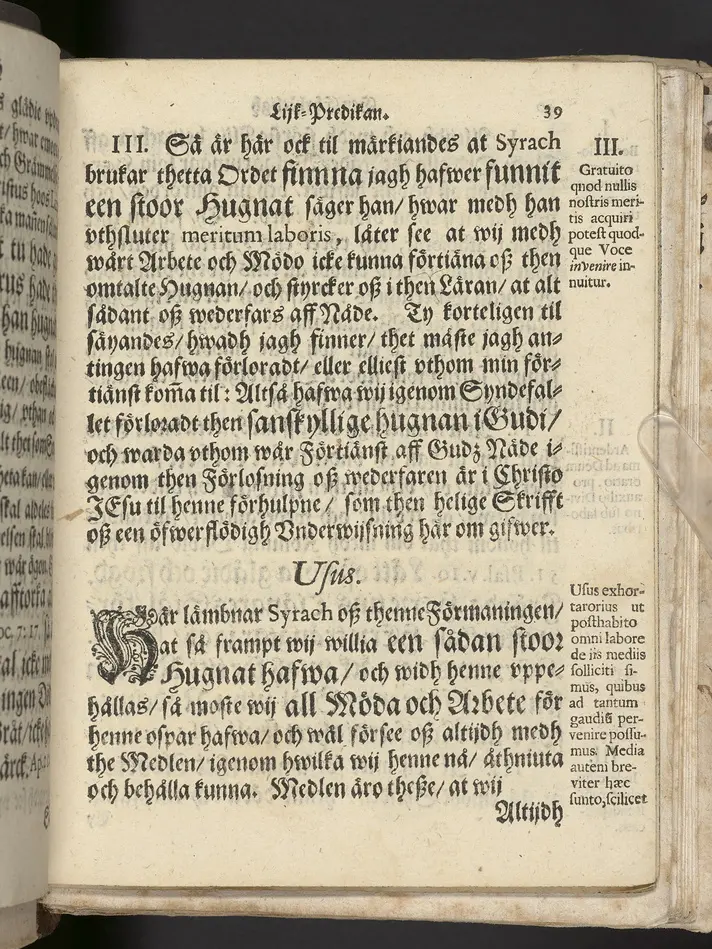 Lijk-Predikan. 39
III. Så är här ock til märkiandes at Syrach
brukar thetta Ordet finnna jagh hafwer funnit
een stoor Hugnat säger han/ hwar medh han
vthsluter meritum laboris, låter see at wij medh
wårt Arbete och Mödo icke kunna förtiäna oß then
omtalte Hugnan/ och styrcker oß i then Läran/ at alt
sådant oß wederfars aff Nåde. Ty korteligen til
säyandes/ hwadh jagh finner/ thet måste jagh an-
tingen hafwa förloradt/ eller elliest vthom min för-
tiänst kom̃a til: Altså hafwa wij igenom Syndefal-
let förloradt then sanskyllige hugnan i Gudi/
och warda vthom wår Förtiänst aff Gudz Nåde i-
genom then Förlosning oß wederfaren är i Christo
JEsu til henne förhulpne/ som then helige Skrifft
oß een öfwerflödigh Vnderwijsning här om gifwer.
III.
Gratuito
quod nullis
nostris meri-
tis acquiri
potest quod-
que Voce
invenire in-
nuitur.
Usus.
Här lämbnar Syrach oß thenne Förmaningen/
at så frampt wij willia een sådan stoor
Hugnat hafwa/ och widh henne vppe-
hållas/ så moste wij all Möda och Arbete för
henne ospar hafwa/ och wäl försee oß altijdh medh
the Medlen/ igenom hwilka wij henne nå/ åthniuta
och behålla kunna. Medlen äro theße/ at wij
Altijdh
Usus exhor-
tarorius ut
posthabito
omni labore
de iis mediis
solliciti si-
mus, quibus
ad tantum
gaudiũ per-
venire possu-
mus. Media
autem bre-
viter hæc
sunto, scilicet